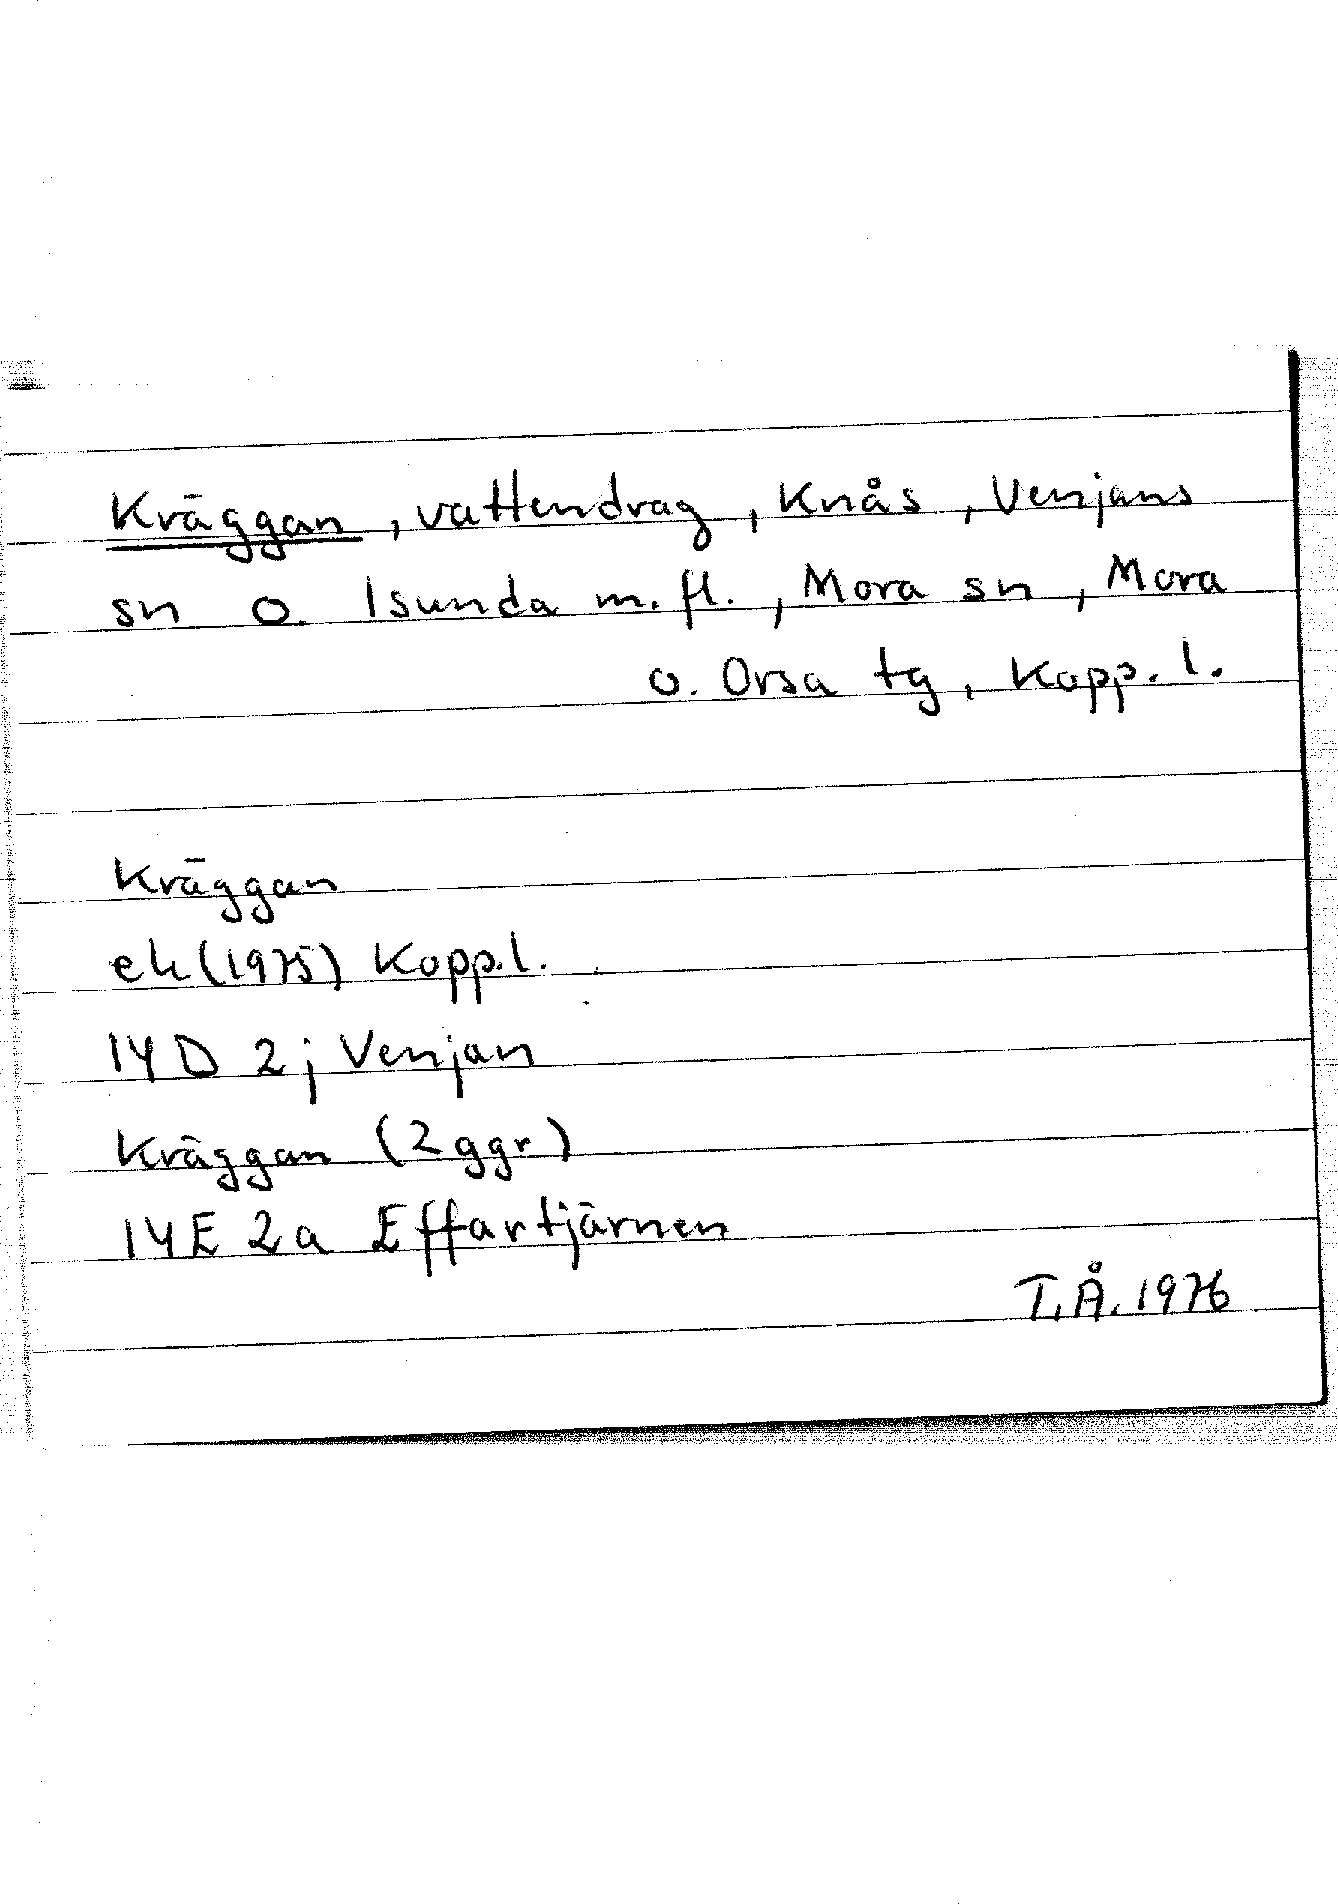 Kräggan, vattendrag, Knås, Venjans
sn o. Isunda m. fl., Mora sn, Mora
o. Orsa tg, Kopp. l.
Kräggan
ek (1975) Kopp.l.
14 D 2j Venjan
Kräggan (2 ggr)
14E 2a Effartjärnen
T.Å. 1976